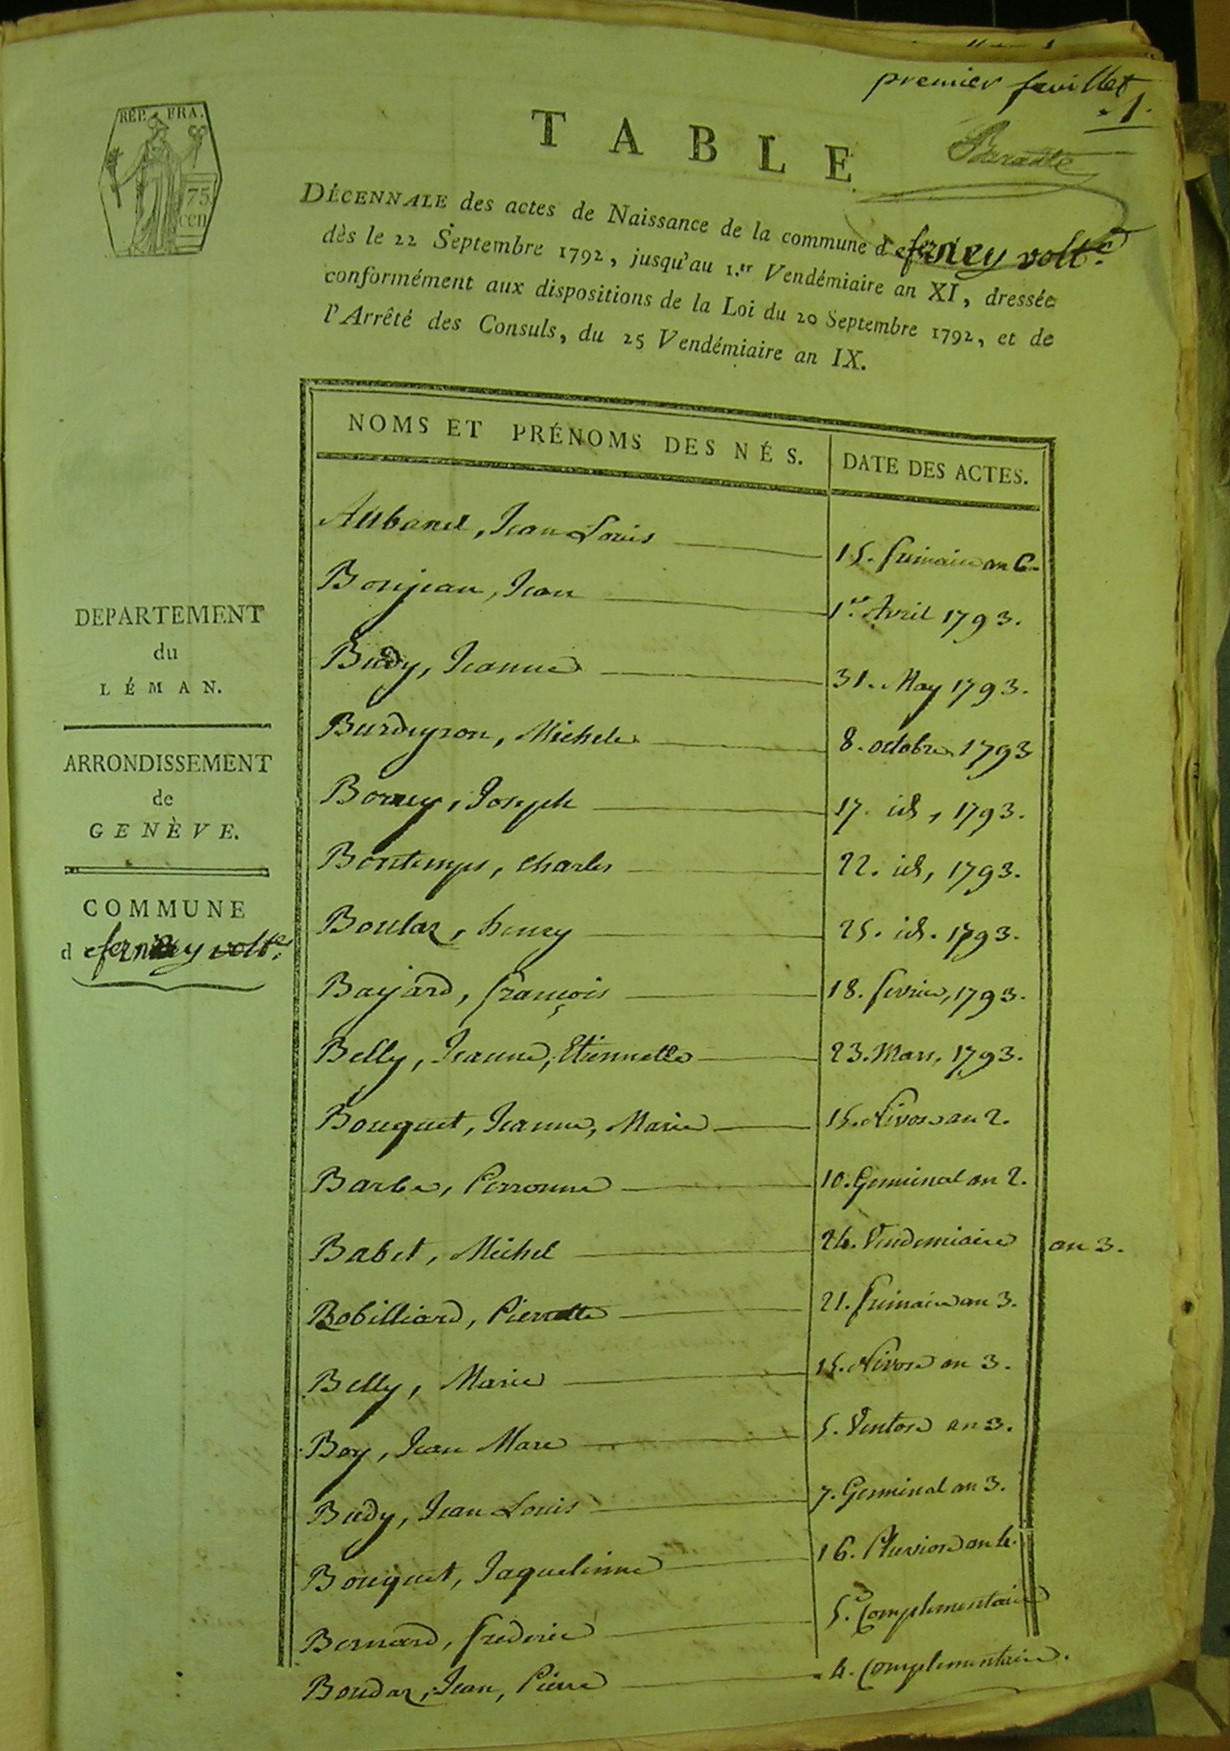 premier feuillet
1.
Barante
RÉP. FRA.
75
cen
TABLE
DÉCENNALE des actes de Naissance de la commune de ferney volt.e
dès le 22 Septembre 1792, jusqu'au 1.er Vendémiaire an XI, dressée
conformément aux dispositions de la Loi du 20 Septembre 1792, et de
l'Arrêté des Consuls, du 25 Vendémiaire an IX.
DEPARTEMENT
du
LÉMAN.
ARRONDISSEMENT
de
GENÈVE.
COMMUNE
de ferney volt.e
NOMS ET PRÉNOMS DES NÉS. DATE DES ACTES.
Aubanel, Jean Louis 15. frimaire an 6.
Bonjean, Jean 1.er Avril 1793.
Budy, Jeanne 31. May 1793.
Burdeyron, Michele 8. octobre 1793
Borney, Joseph 17. id, 1793.
Bontemps, charles 22. id, 1793.
Boulaz, henry 25. id. 1793.
Bayard, françois 18. fevrier, 1793.
Belly, Jeanne, Etiennette 23. Mars, 1793.
Bouquet, Jeanne, Marie 15. Nivose an 2.
Barbe, Perronne 10. Germinal an 2.
Babet, Michel 24. Vendemiaire an 3.
Robilliard, Pierrette 21. frimaire an 3.
Belly, Marie 15. Nivose an 3.
Boy, Jean Marc 5. Ventose an 3.
Budy, Jean Louis 7. Germinal an 3.
Bouquet, Jaquelinne 16. Pluviose an 4.
Bernard, frederic 5.e Complimentaire
Boudaz, Jean, Pierre 4. Complimentaire.